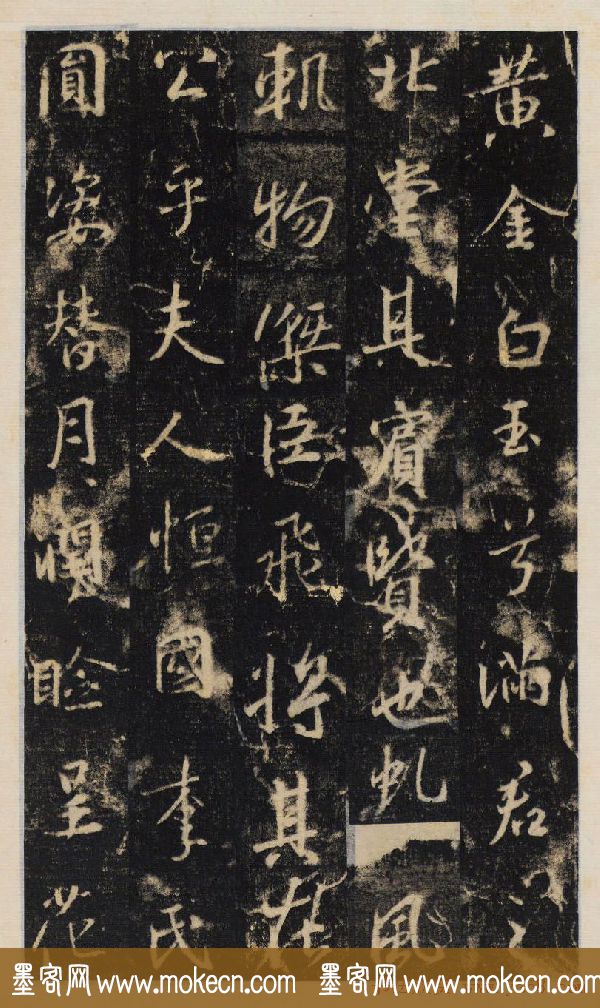 黄金白玉兮滿君之
北堂具賓賢也虬風
軌物傑臣飛將其在
公乎夫人恒國李氏
圓姿替月潤臉呈花
墨客网 www.mokecn.com 墨客网 www.mokecn.com